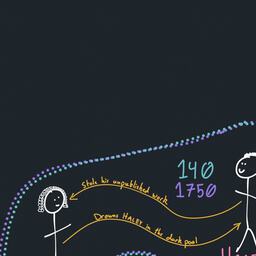 140
1750
Stole his unpublished work
Drowns HALEY in the dark pool